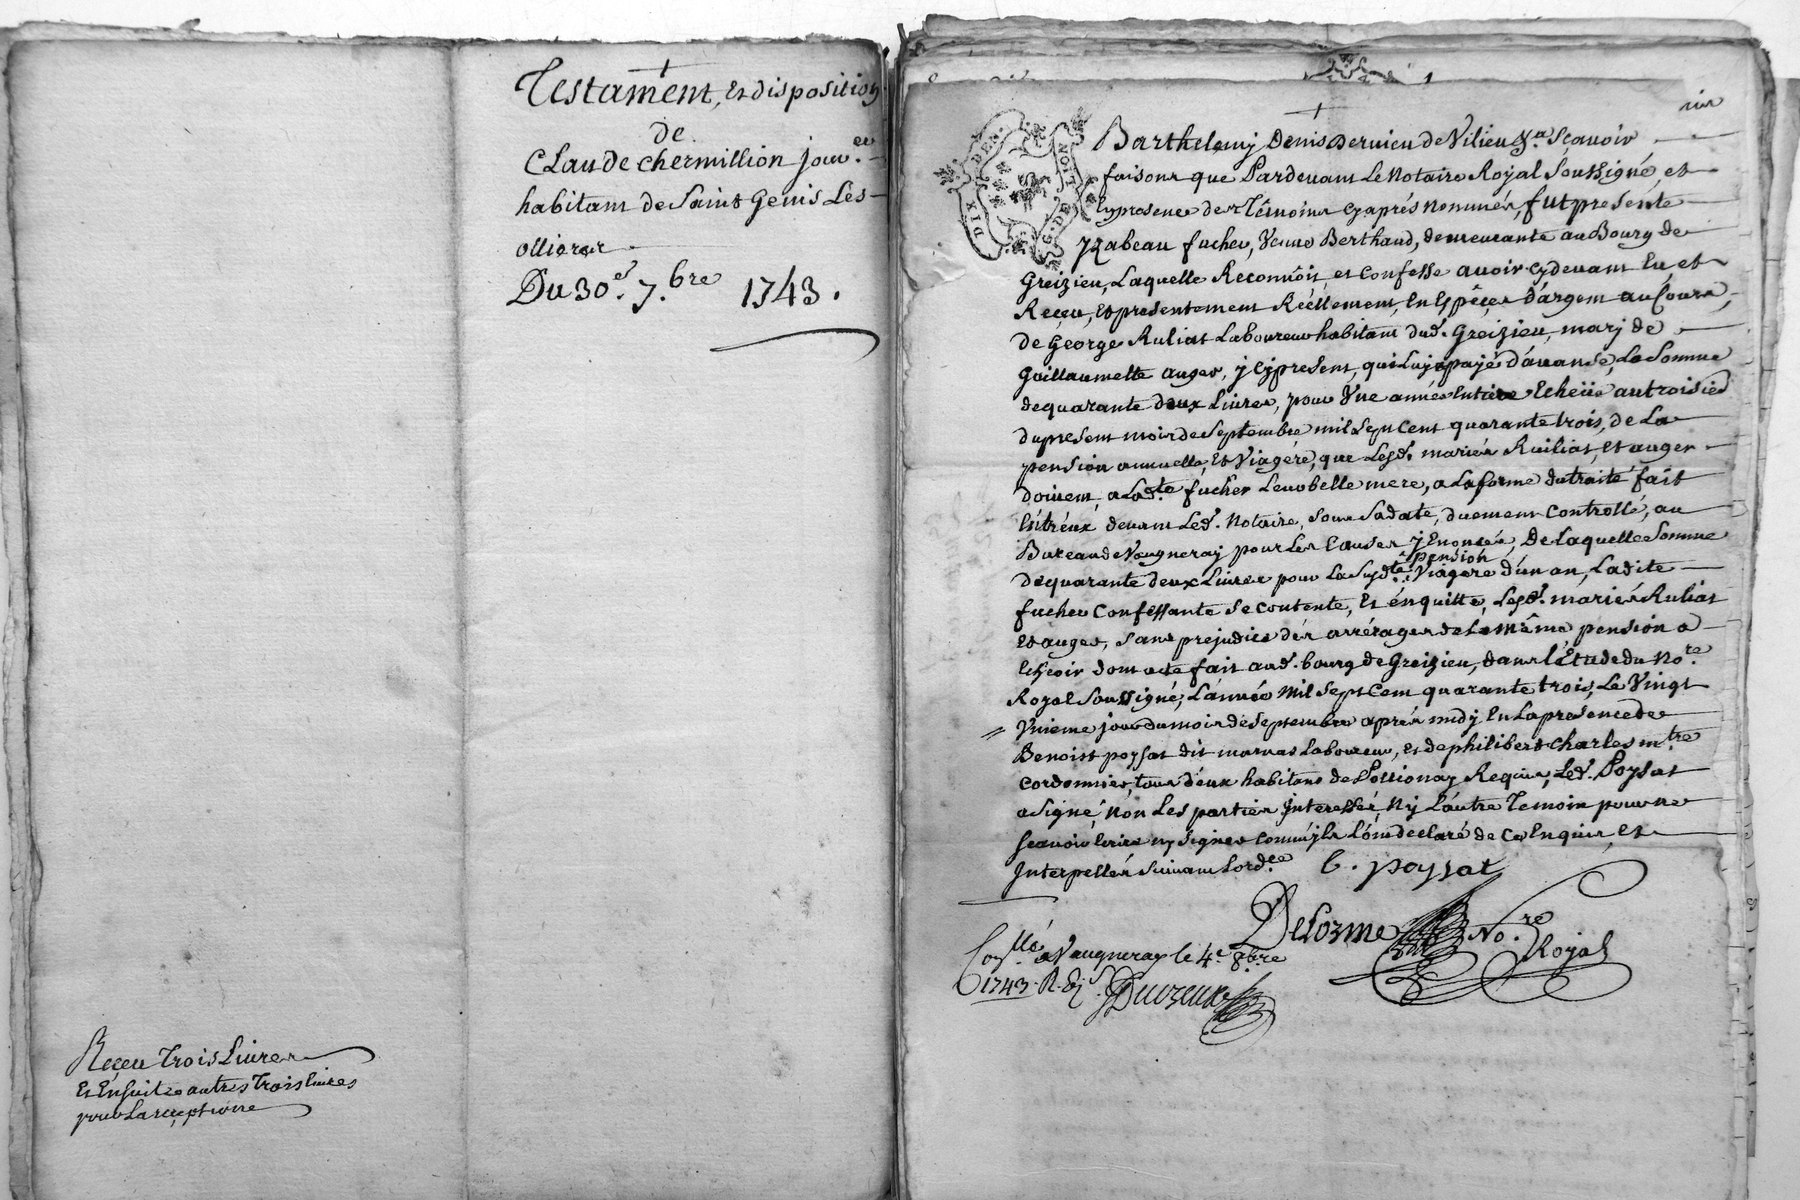 Testament, et disposition
de
Claude chermillion jouv.ee
habitant de Saint Genis Les
ollieres
Du 30.e 7.bre 1743.
Receu Trois Livres
Et Ensuitte autres Trois livres
pour La receptionne
Barthelemy Denis Dervieu de Vilieu &.a Sçavoir
faisons que Pardevant Le Notaire Royal Soussigné, et
En presence des Témoins cyaprés nommés, fut presente
Yzabeau fucher, Veuve Berthaud, demeurante au Bourg de
Greizieu, Laquelle Reconnoit, et Confesse avoir cydevant Eu, et
Receu, et presentement Réellement, En Espéces D'argent au Cours,
de George Ruliat Laboureur habitant dud. Greizieu, mary de
Guillaumette auger, y cypresent, qui Luy a payé d'avanse, La Somme
de quarante deux Livres, pour Une année Entiere Echeüe au troisie
du present mois de Septembre mil Sept Cent quarante trois, de La
pension annuelle, et Viagére, que Lesd. mariés Ruliat, et auger
doivent, a Lad.te fucher Leur belle mere, a La forme du traité fait
Entréux devant Led. Notaire, Sous Sa date, duement Controllé, au
Bureau de Vaugneray pour Les Causes y Enoncées, De Laquelle Somme
pension
de quarante deux Livres pour La Susd.te Viagere d'un an, Ladite
fucher Confessante Se Contente, et én quitte, Lesd. mariés Ruliat
et auger, Sans prejudice dés arrérages de La même pension a
Echeoir dont acte fait aud. bourg de Greizieu, dans L'Etude du No.re
Royal Soussigné, L'année mil Sept Cent quarante trois, Le Vingt
Unieme jour du mois de Septembre aprés midy En La presence de
Benoist poysat dit marnas Laboureur, et de philibert Charles m.tre
Cordonnier, tous deux habitans de Pollionay Requis, Led. Poysat
a Signé, Non Les parties Interessées, Ny L'autre Temoin pour ne
Sçavoir Ecrire ny Signer comme ils L'ont declaré de Ce Enquis, et
Interpellés Suivant L'ord.ce
b. poysat
Delorme No.re
Royal
Con.llé a Vaugneray le 4.e 8bre
1743. R.